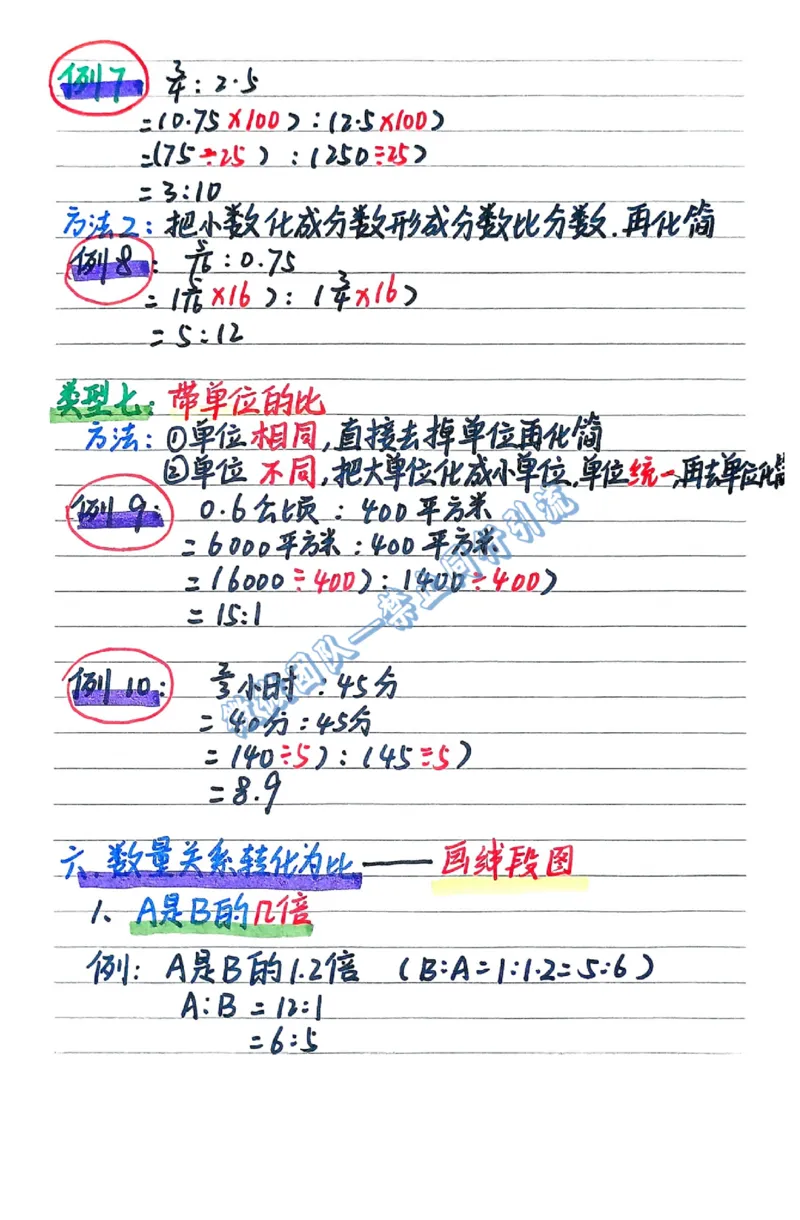 例7 3/4:2.5
=(0.75×100):(2.5×100)
=(75÷25):(250÷25)
=3:10
方法2:把小数化成分数形成分数比分数.再化简
例8: 5/16:0.75
=(5/16×16):(3/4×16)
=5:12
类型七:带单位的比
方法:①单位相同,直接去掉单位再化简
②单位不同,把大单位化成小单位,单位统一,再去单位化简
例9: 0.6公顷:400平方米
=6000平方米:400平方米
=(6000÷400):(400÷400)
=15:1
例10: 2/3小时:45分
=40分:45分
=(40÷5):(45÷5)
=8.9
六.数量关系转化为比——画线段图
1、A是B的几倍
例:A是B的1.2倍 (B:A=1:1.2=5:6)
A:B=12:1
=6:5
团队—禁止同行引流